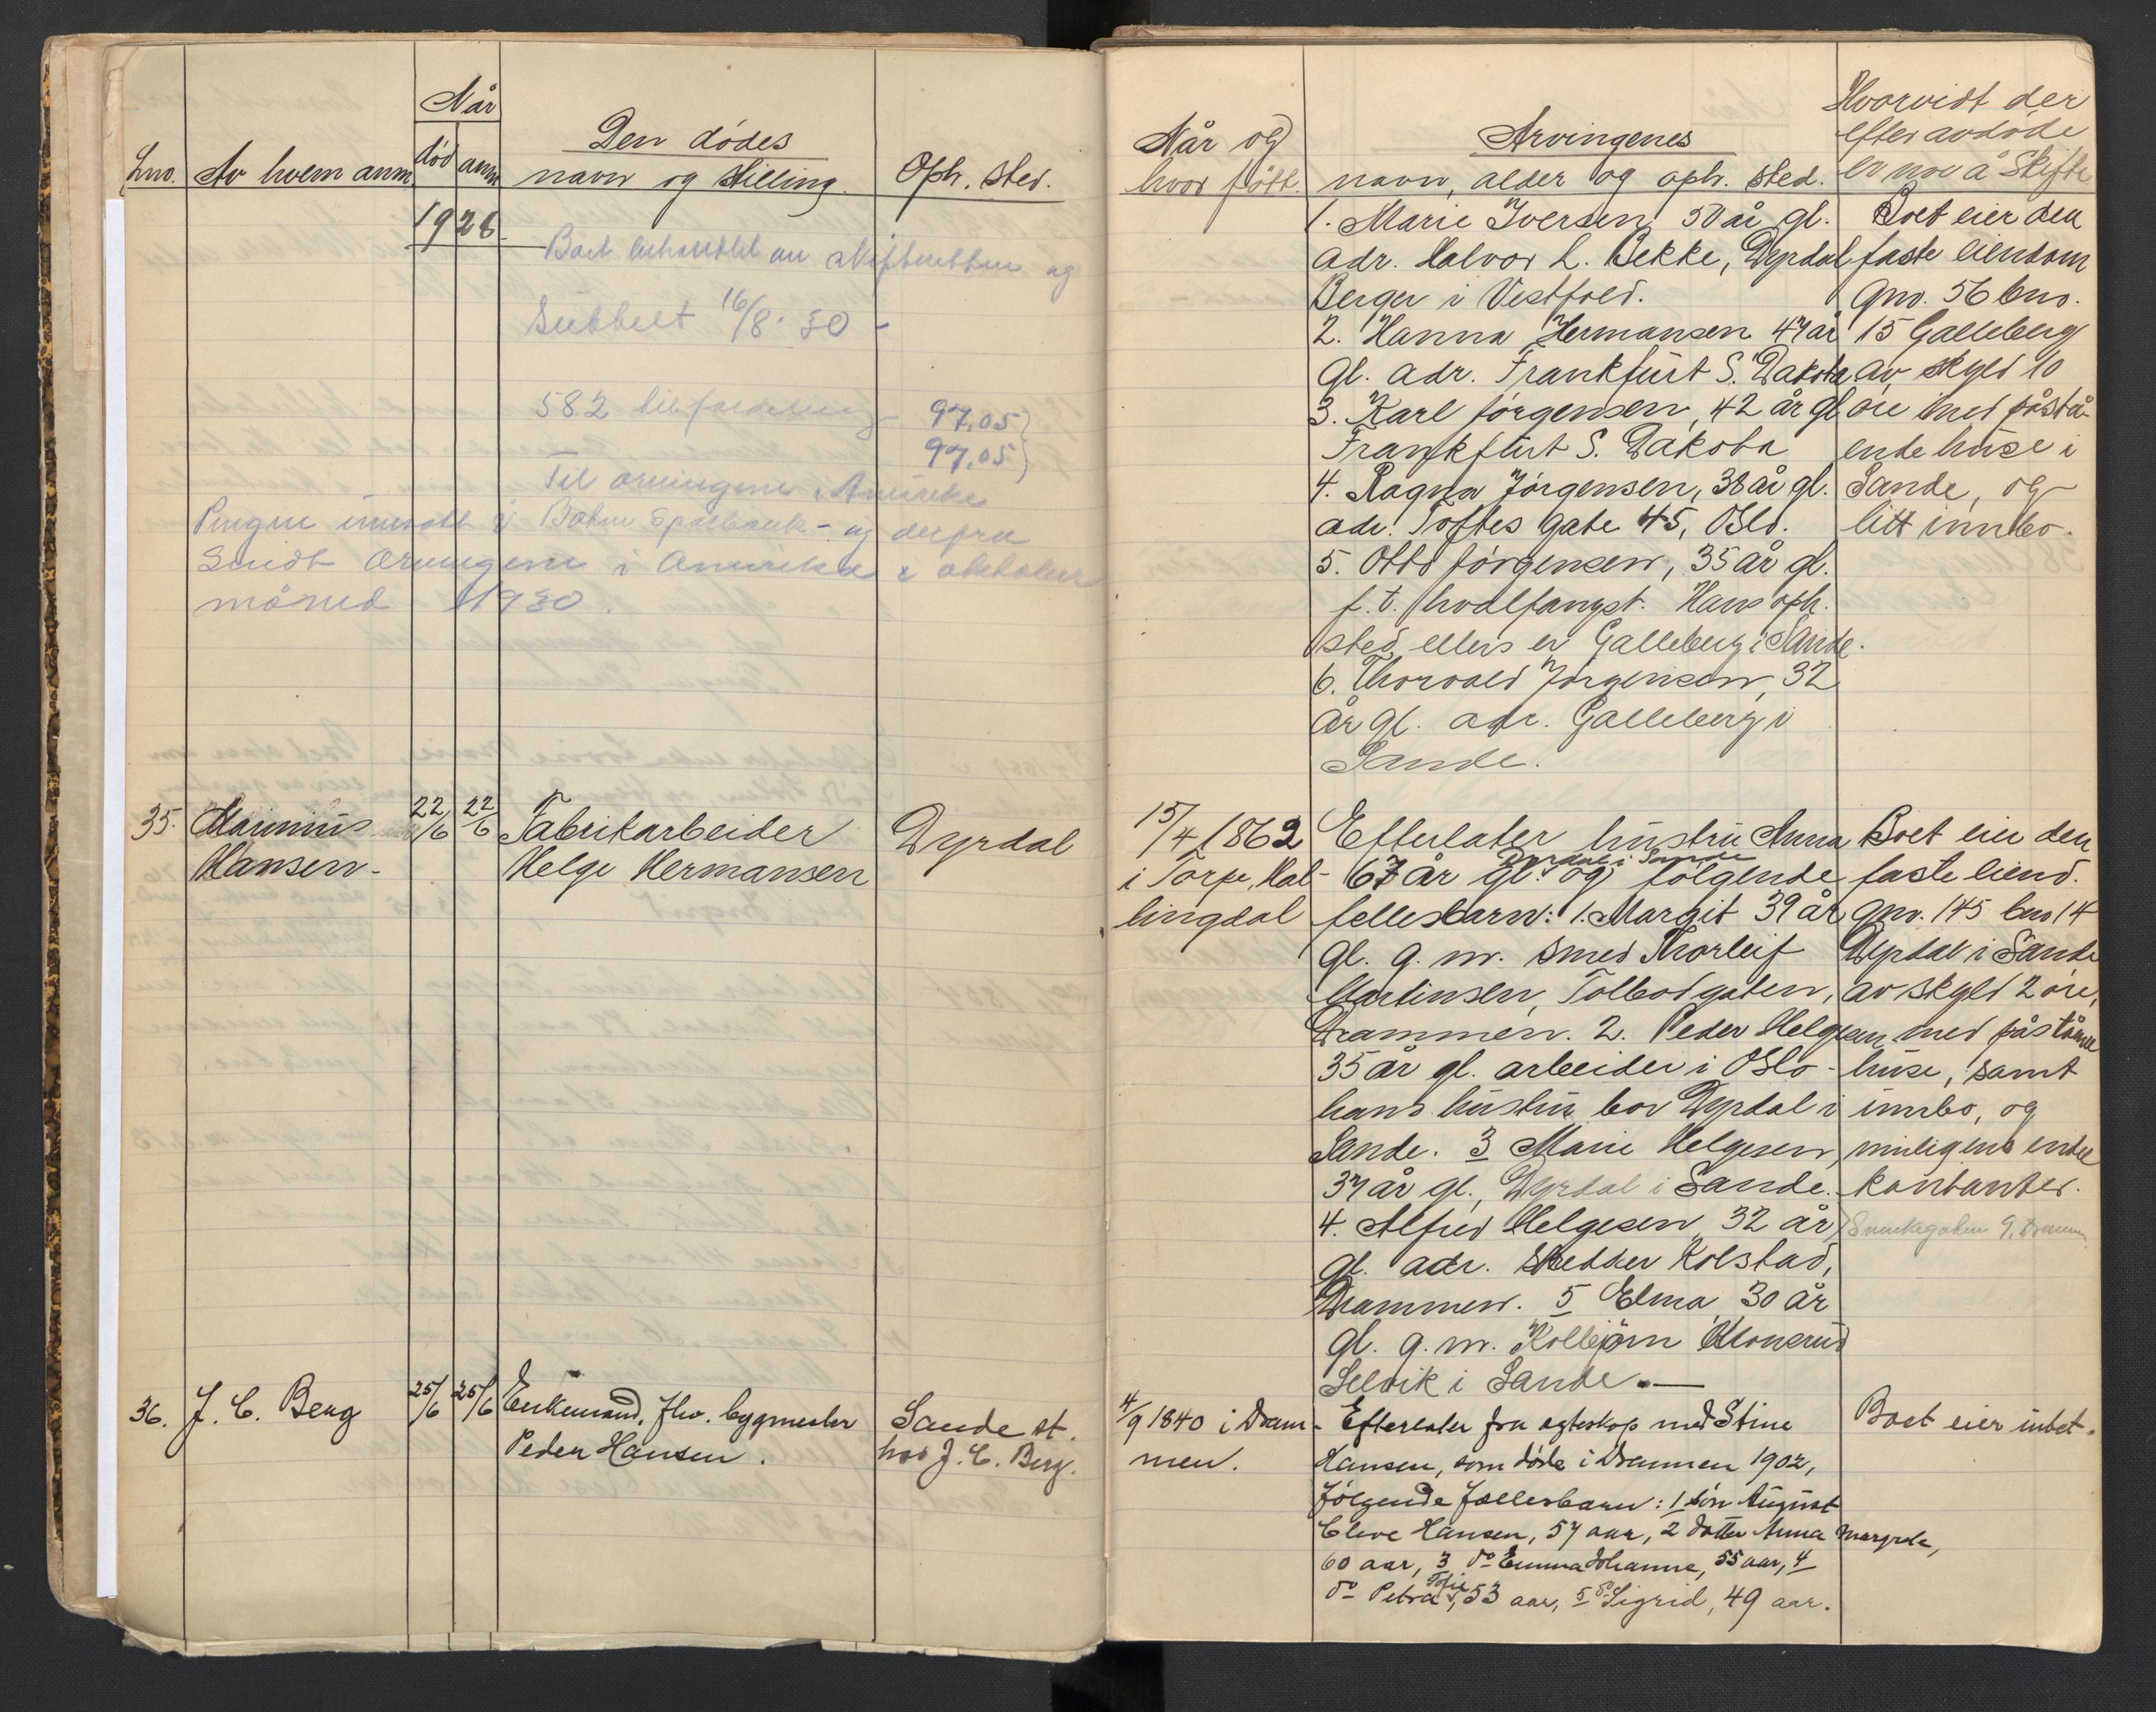 Når
Lno. Av hvem anm. død anm. Den dødes navn og stilling. Oph. sted.
1928.
Boet behandlet av skifteretten og
sluttet 16/8. 30 -
582 til fordeling 97,05
97,05
Til arvingene i Amerika
Pengene innsatt i Botne Sparebank - og derfra
sendt arvingene i Amerika i oktober
måned 1930.
35. Marinius 22/6 22/6 Fabrikarbeider Dyrdal
Hansen - Helge Hermansen
36. J. C. Berg 25/6 25/6 Enkemand, fhv. bygmester Sande st.
Peder Hansen. hos J. C. Berg.
Når og
hvor født.
Arvingenes
navn, alder og oph. sted.
Hvorvidt der
efter avdøde
er noe å skifte
1. Marie Iversen 50 år gl.
adr. Halvor L. Bekke, Dyrdal
Berger i Vestfold.
2. Hanna Hermansen 47 år
gl. adr. Frankfurt S. Dakota
3. Karl Jørgensen, 42 år gl
Frankfurt S. Dakota
4. Ragna Jørgensen, 38 år gl.
adr. Toftes gate 45, Oslo.
5. Otto Jørgensen, 35 år gl.
f. t. hvalfangst. Hans oph.
sted ellers er Galleberg i Sande.
6. Thorvald Jørgensen, 32
år gl. adr. Galleberg i
Sande.
Boet eier den
faste eiendom
gno. 56 bno.
15 Galleberg
av skyld 10
øre med påstå-
ende huse i
Sande, og
litt innbo.
15/4 1862
i Torpe, Hal-
lingdal
Efterlater hustru Anna
Dyrdal i Sande
67 år gl. og følgende
fellesbarn: 1. Margit 39 år
gl. g. m. smed Thorleif
Martinsen, Tolbodgaten,
Drammen. 2. Peder Helgesen
35 år gl. arbeider i Oslo -
hans hustru bor Dyrdal i
Sande. 3 Marie Helgesen,
37 år gl., Dyrdal i Sande.
4. Alfred Helgesen 32 år
gl. adr. Skedder Kolstad,
Drammen. 5 Elma 30 år
gl. g. m. Kolbjørn Klonerud
Selvik i Sande. —
Boet eier den
faste eiend.
gno. 145 bno 14
Dyrdal i Sande
av skyld 2 øre,
med påstående
huse, samt
innbo, og
muligens endel
kontanter.
4/9 1840 i Dram-
men.
Efterlater fra egteskap med Stine
Hansen, som døde i Drammen 1902,
følgende fællesbarn: 1 søn August
Cleve Hansen, 57 aar, 2 datter Anna Margrete,
60 aar, 3 do Emma Johanne, 55 aar, 4
do Petra Sofie, 53 aar, 5 do Sigrid, 49 aar.
Boet eier intet.